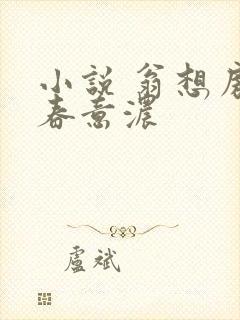 小說 翁想房
春意濃
盧斌